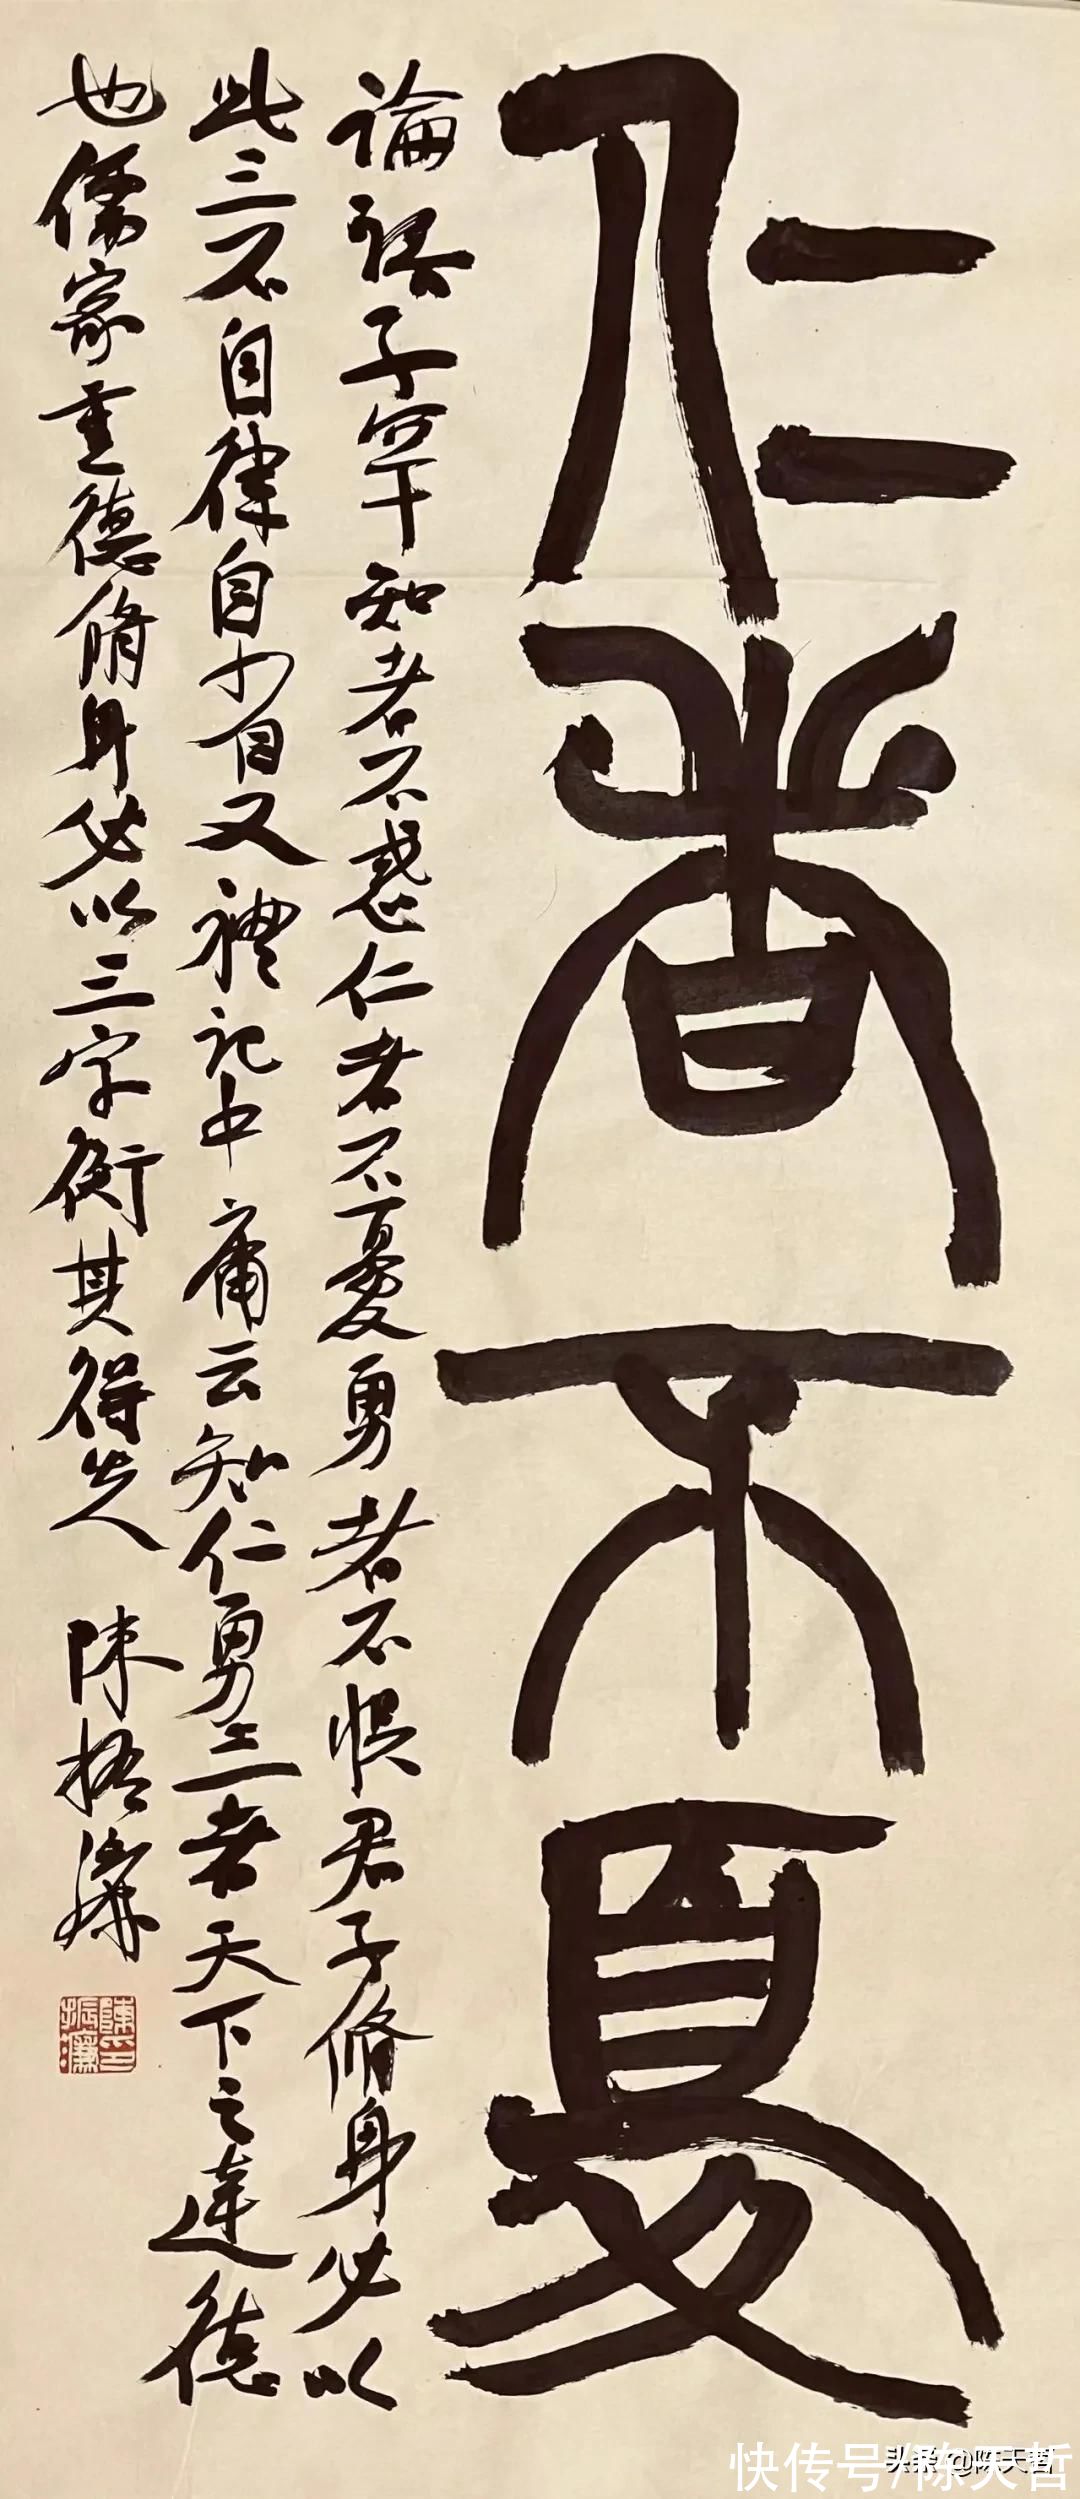 仁者不憂
論語子罕知者不惑仁者不憂勇者不惧君子修身必以
此三不自律自省又禮記中庸云知仁勇三者天下之達德
也儒家重德脩身必以三字衡其得失 陳振濂
陳印振濂
快传号/陈天哲
头条 @陈天哲